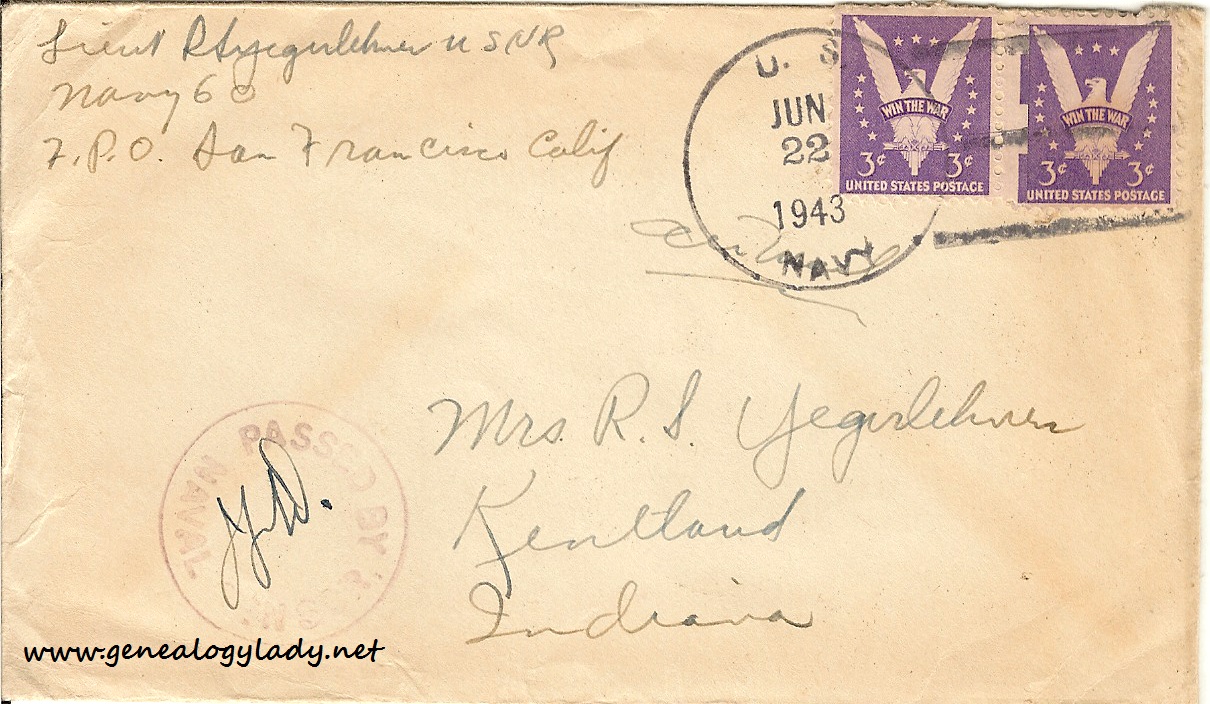 Lieut R S Yegerlehner U S N R
Navy 60
F.P.O. San Francisco Calif
U. S.
JUN
22
1943
NAVY
WIN THE WAR
3¢ 3¢
UNITED STATES POSTAGE
WIN THE WAR
3¢ 3¢
UNITED STATES POSTAGE
Air Mail
Mrs. R. S. Yegerlehner
Kentland
Indiana
PASSED BY
NAVAL
www.genealogylady.net